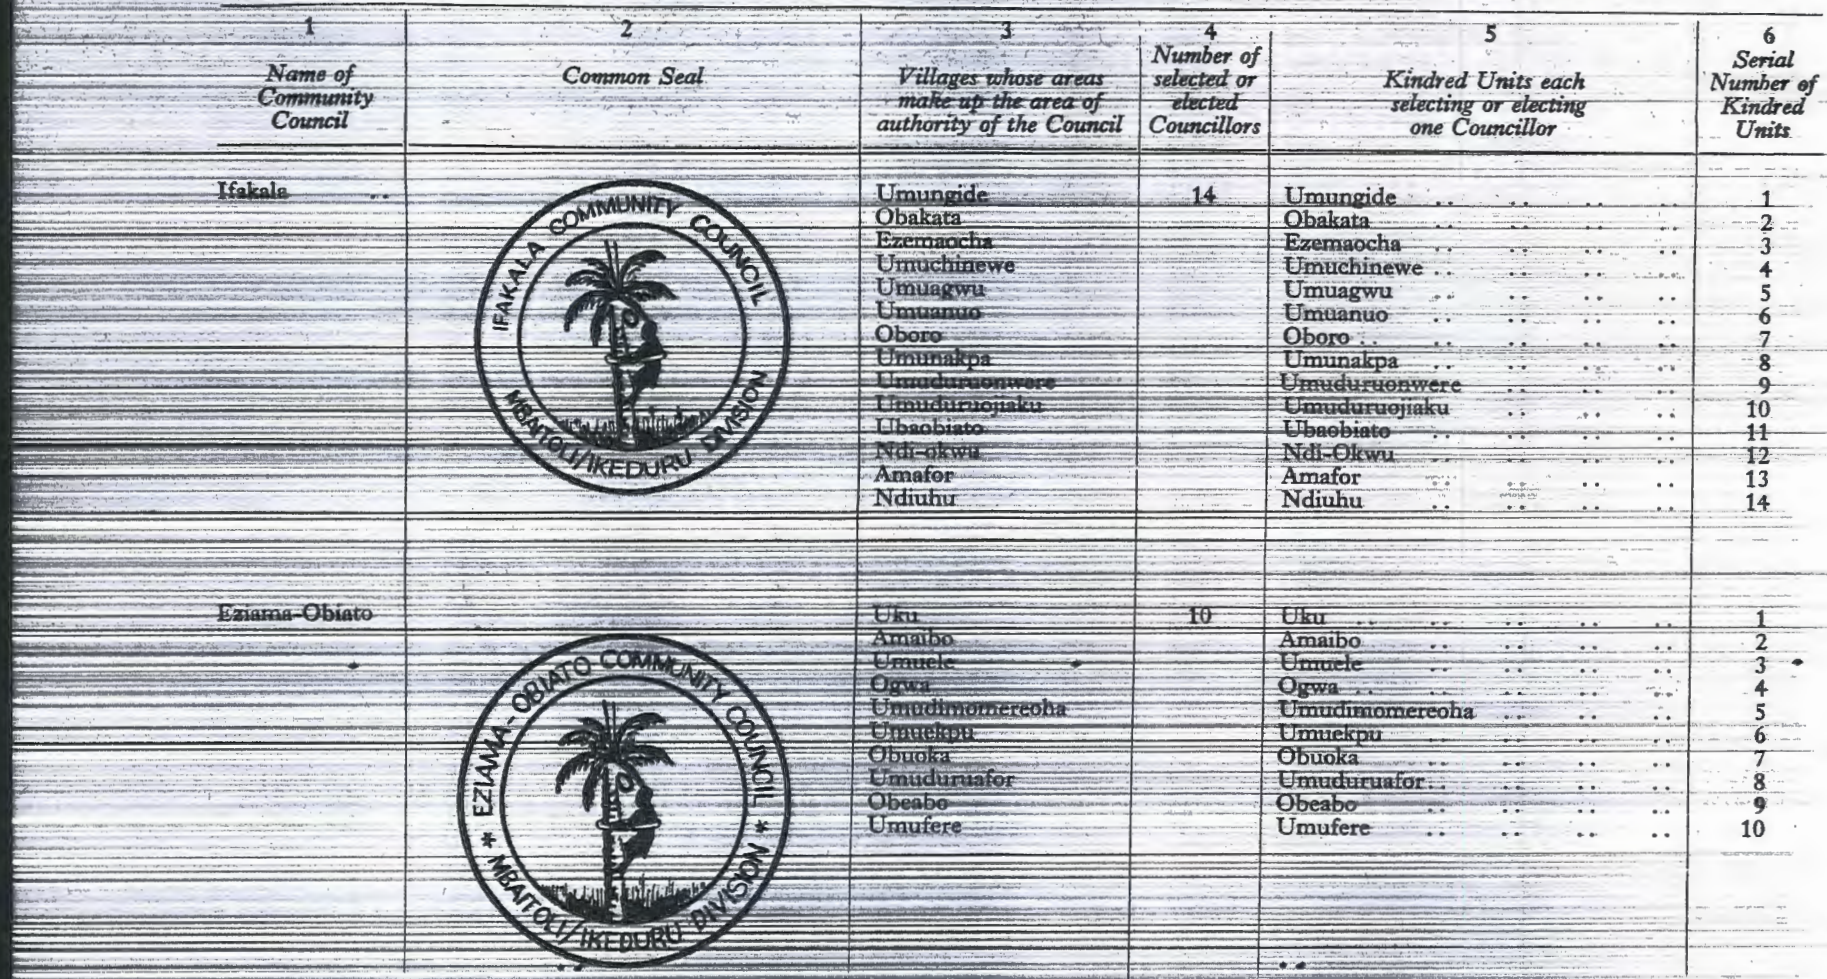 1 2 3 4 5 6
Name of Community Council
Common Seal
Villages whose areas make up the area of authority of the Council
Number of selected or elected Councillors
Kindred Units each selecting or electing one Councillor
Serial Number of Kindred Units
Ifakala .. Umungide 14 Umungide .. .. .. .. 1
Obakata Obakata .. .. .. .. 2
Ezemaocha Ezemaocha .. .. .. .. 3
Umuchinewe Umuchinewe .. .. .. .. 4
Umuagwu Umuagwu .. .. .. .. 5
Umuanuo Umuanuo .. .. .. .. 6
Oboro Oboro .. .. .. .. .. 7
Umunakpa Umunakpa .. .. .. .. 8
Umuduruonwere Umuduruonwere .. .. .. 9
Umuduruojiaku Umuduruojiaku .. .. .. 10
Ubaobiato Ubaobiato .. .. .. .. 11
Ndi-okwu Ndi-Okwu .. .. .. .. 12
Amafor Amafor .. .. .. .. 13
Ndiuhu Ndiuhu .. .. .. .. 14
IFAKALA COMMUNITY COUNCIL
MBAITOLI/IKEDURU DIVISION
Eziama-Obiato Uku 10 Uku .. .. .. .. .. 1
Amaibo Amaibo .. .. .. .. 2
Umuele Umuele .. .. .. .. 3
Ogwa Ogwa .. .. .. .. .. 4
Umudimomereoha Umudimomereoha .. .. .. 5
Umuekpu Umuekpu .. .. .. .. 6
Obuoka Obuoka .. .. .. .. 7
Umuduruafor Umuduruafor .. .. .. .. 8
Obeabo Obeabo .. .. .. .. 9
Umufere Umufere .. .. .. .. 10
EZIAMA-OBIATO COMMUNITY COUNCIL
* MBAITOLI/IKEDURU DIVISION *